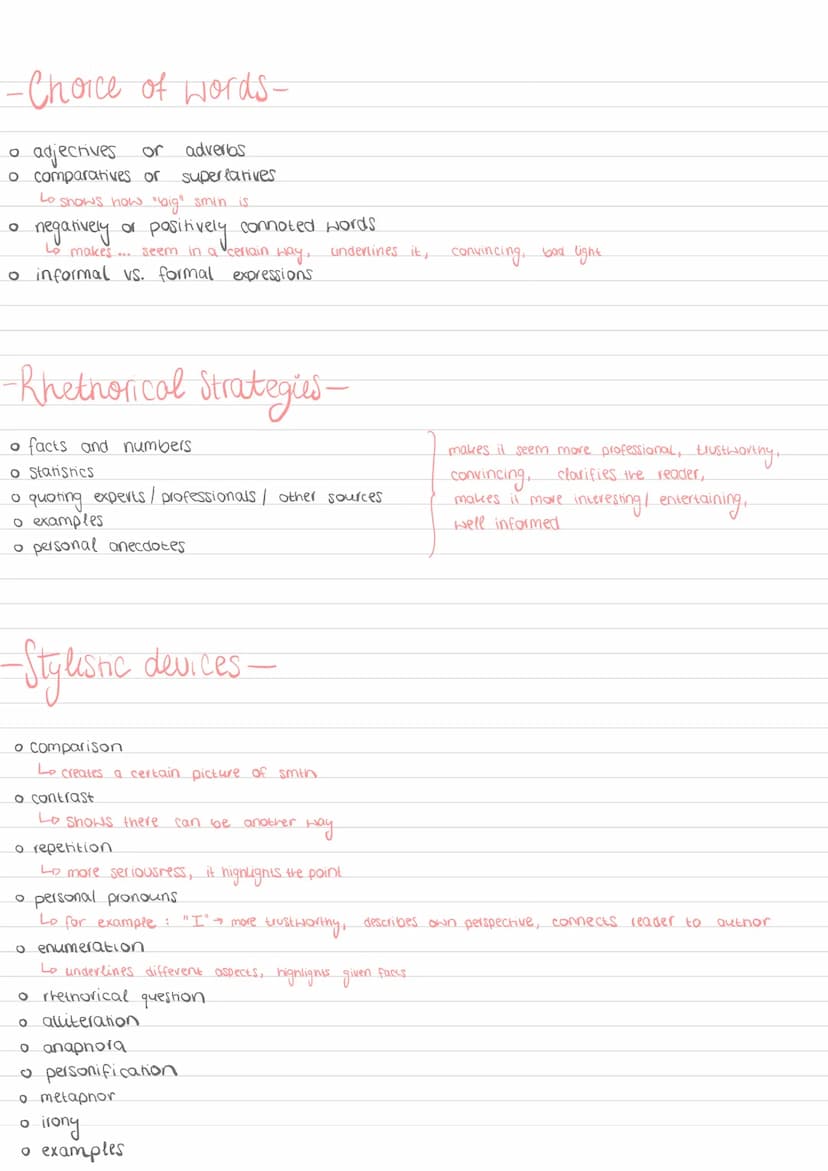 -Choice of words-
o adjectives or adverbs
o comparatives or superlatives
↳ shows how "big" smth is
o negatively or positively connoted words
↳ makes... seem in a certain way, underlines it, convincing, bad light
o informal vs. formal expressions
-Rhethorical Strategies-
o facts and numbers
o statistics
o quoting experts/professionals/ other sources
o examples
o personal anecdotes
makes it seem more professional, trustworthy,
convincing, clarifies the reader,
makes it more interesting/ entertaining,
well informed
-Stylistic devices-
o comparison
↳ creates a certain picture of smth
o contrast
↳ shows there can be another way
o repetition
↳ more seriousness, it highlights the point
o personal pronouns
↳ for example: "I" → more trustworthy, describes own perspective, connects reader to author
o enumeration
↳ underlines different aspects, highlights given facts
o rhethorical question
o alliteration
o anaphora
o personification
o metaphor
o irony
o examples